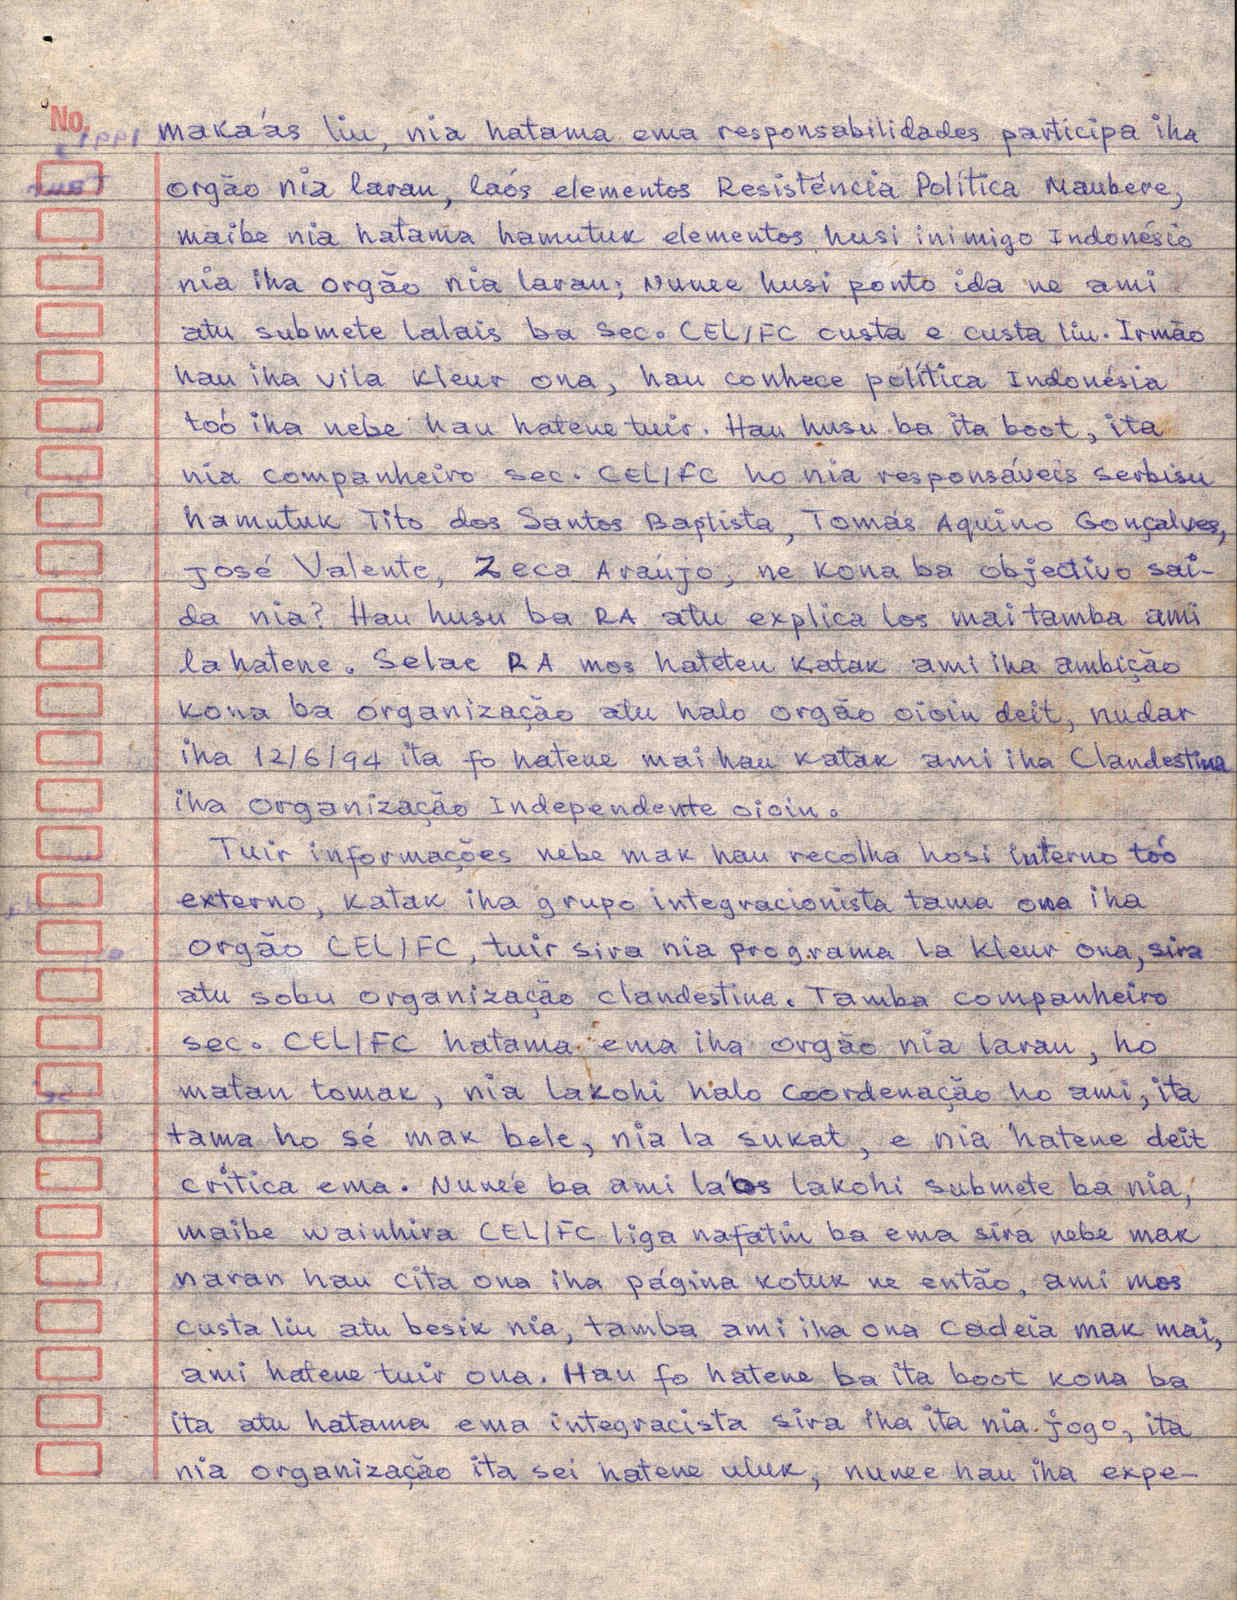 No.
maka'as liu, nia hatama ema responsabilidades participa iha
orgão nia laran, laós elementos Resisténcia Política Maubere,
maibe nia hatama hamutuk elementos husi inimigo Indonésio
nia iha orgão nia laran; Nunee husi ponto ida ne ami
atu submete lalais ba Sec. CEL/FC custa e custa liu. Irmão
hau iha vila kleur ona, hau conhece política Indonésia
toó iha nebe hau hatene tuir. Hau husu ba ita boot, ita
nia companheiro sec. CEL/FC ho nia responsáveis serbisu
hamutuk Tito dos Santos Baptista, Tomás Aquino Gonçalves,
José Valente, Zeca Araújo, ne kona ba objectivo sai-
da nia? Hau husu ba RA atu explica los mai tamba ami
la hatene. Selae RA mos hateten katak ami iha ambição
kona ba organização atu halo orgão oioin deit, nudar
iha 12/6/94 ita fo hatene mai hau katak ami iha Clandestina
iha organização Independente oioin.
Tuir informações nebe mak hau recolha hosi interno toó
externo, katak iha grupo integracionista tama ona iha
orgão CEL/FC, tuir sira nia programa la kleur ona, sira
atu sobu organização clandestina. Tamba companheiro
sec. CEL/FC hatama ema iha orgão nia laran, ho
matan tomak, nia lakohi halo coordenação ho ami, ita
tama ho sé mak bele, nia la sukat, e nia hatene deit
crítica ema. Nuneé ba ami la'os lakohi submete ba nia,
maibe wainhira CEL/FC liga nafatin ba ema sira nebe mak
naran hau cita ona iha página kotuk ne então, ami mos
custa liu atu besik nia, tamba ami iha ona cadeia mak mai,
ami hatene tuir ona. Hau fo hatene ba ita boot kona ba
ita atu hatama ema integracista sira iha ita nia jogo, ita
nia organização ita sei hatene uluk, nunee hau iha expe-